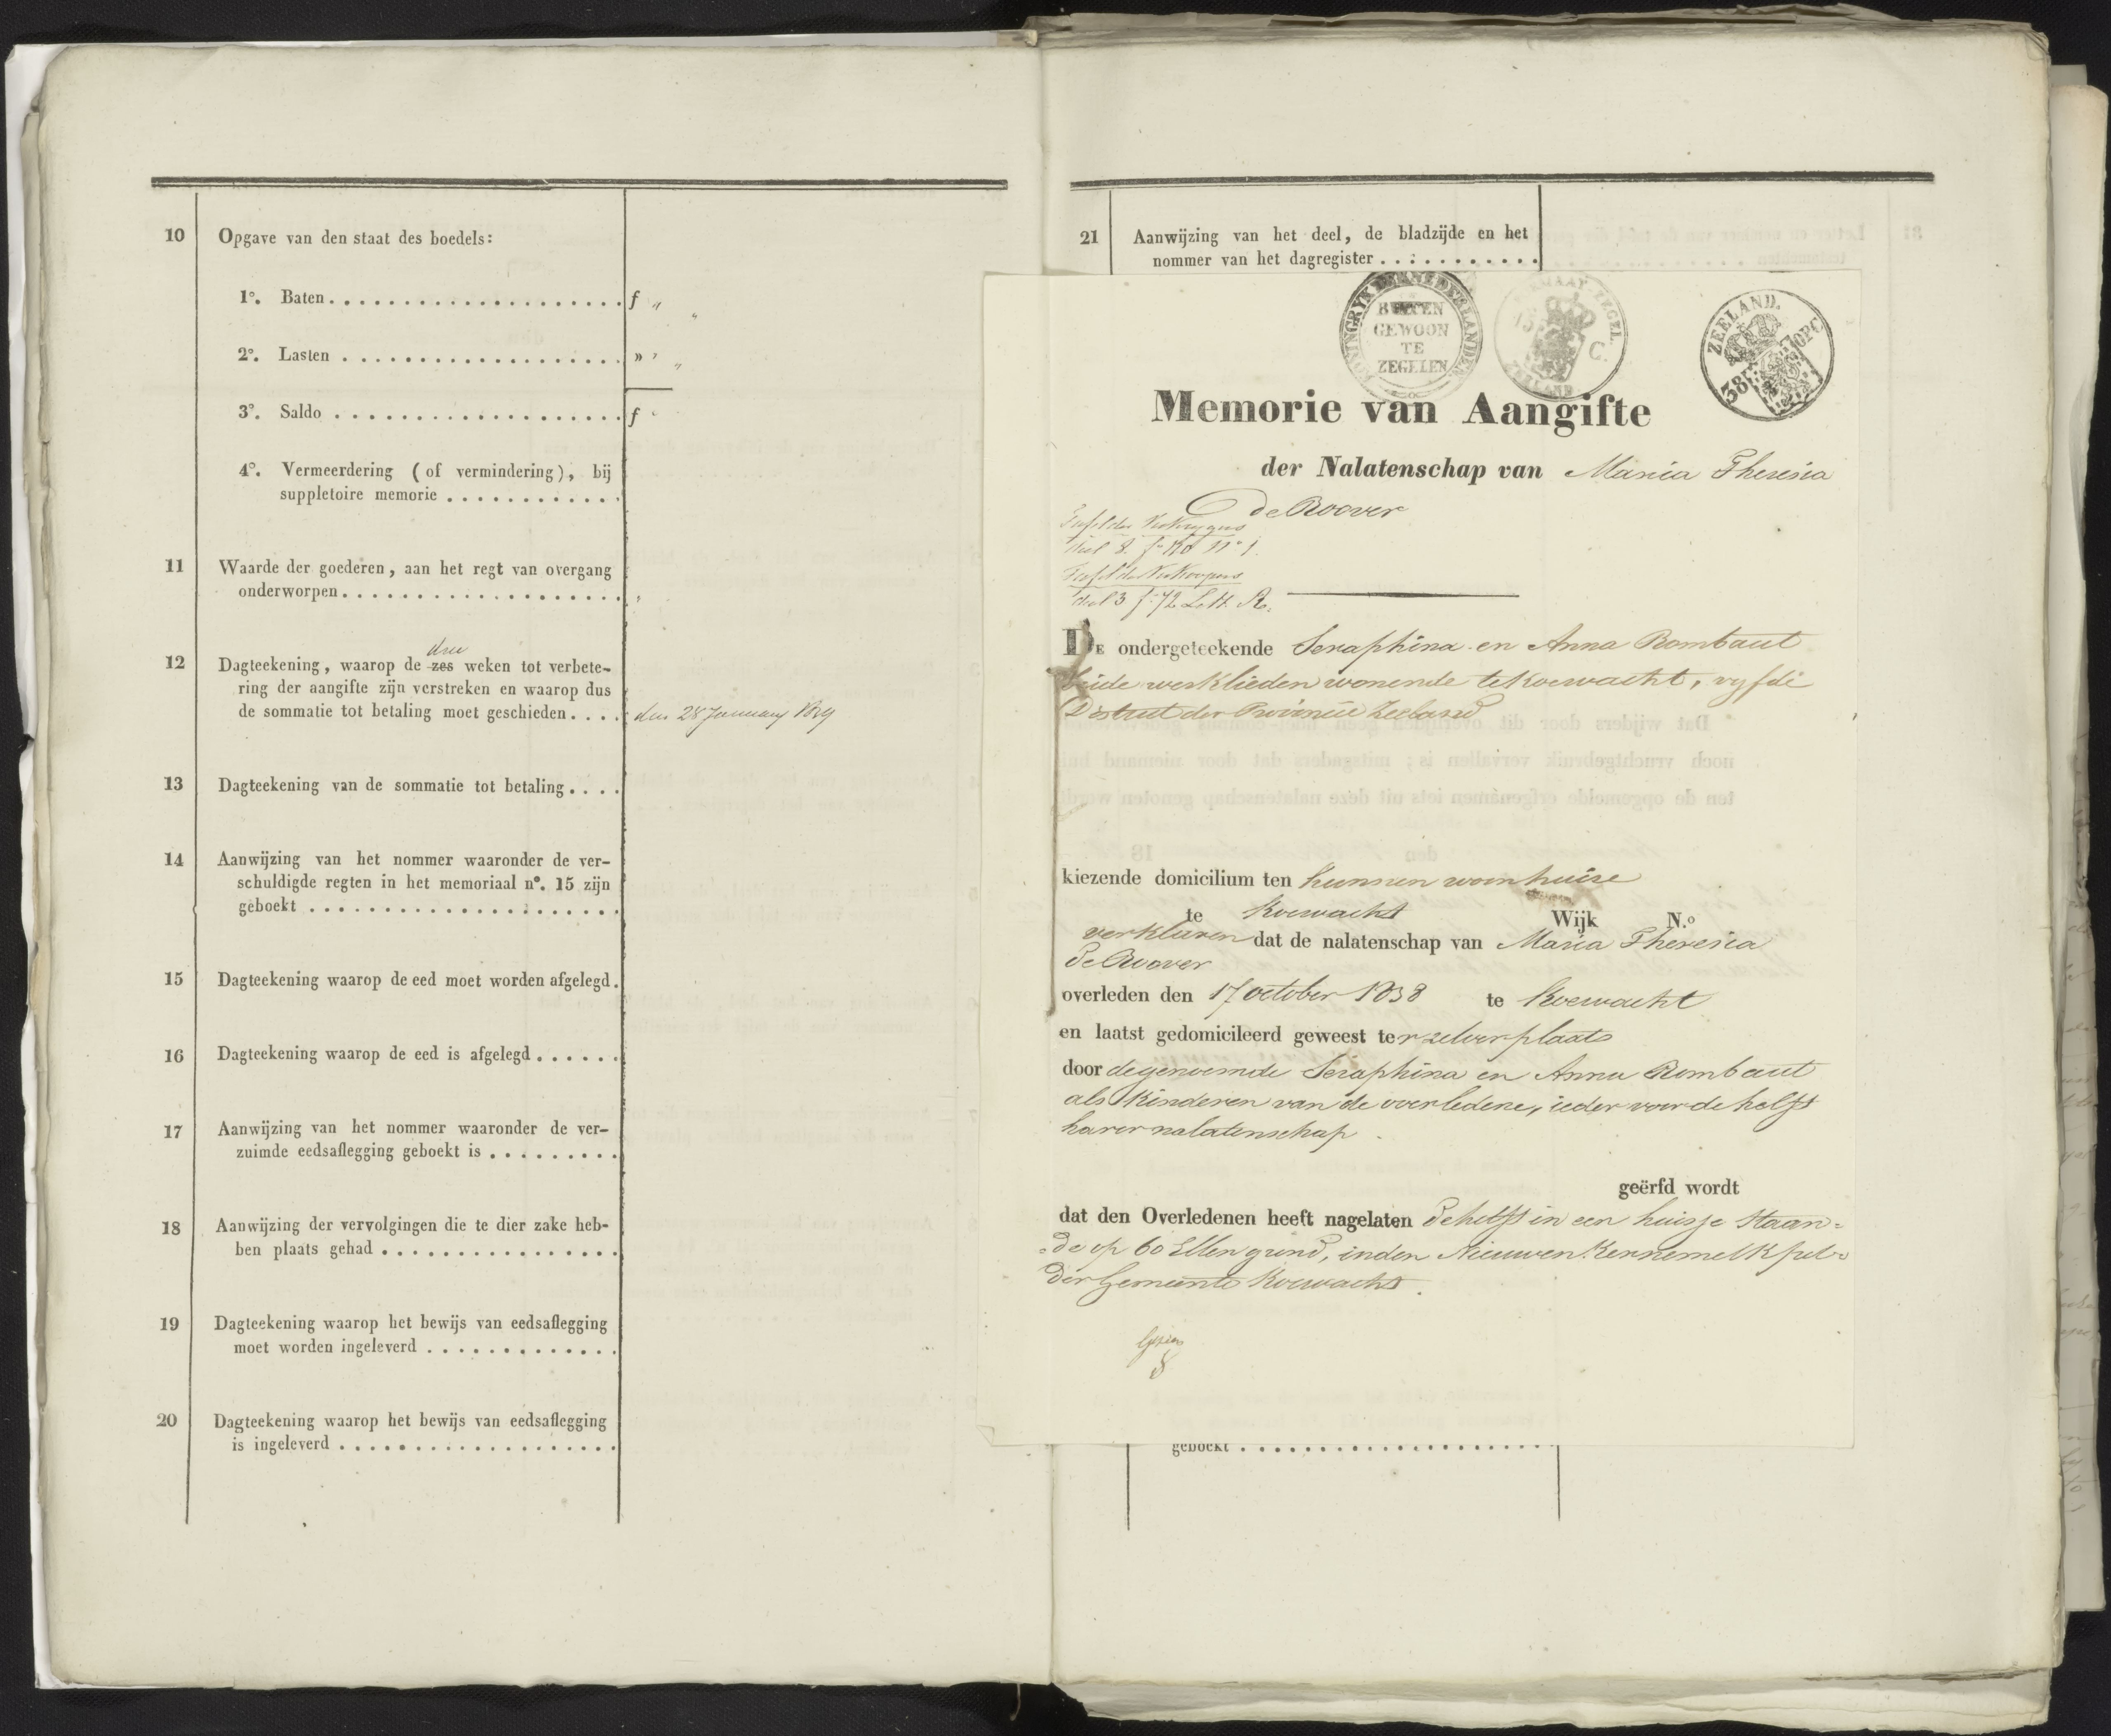 10 Opgave van den staat des boedels:
1°. Baten . . . . . . . . . . . . . . . . . . . . f „ „
2°. Lasten . . . . . . . . . . . . . . . . . . . » „ „
3°. Saldo . . . . . . . . . . . . . . . . . . . . f
4°. Vermeerdering (of vermindering), bij
suppletoire memorie . . . . . . . . . . . .
11 Waarde der goederen, aan het regt van overgang
onderworpen . . . . . . . . . . . . . . . . . . .
drie
12 Dagteekening, waarop de zes weken tot verbete-
ring der aangifte zijn verstreken en waarop dus
de sommatie tot betaling moet geschieden . . . . den 28 January 1839
13 Dagteekening van de sommatie tot betaling . . . .
14 Aanwijzing van het nommer waaronder de ver-
schuldigde regten in het memoriaal n°. 15 zijn
geboekt . . . . . . . . . . . . . . . . . . . . .
15 Dagteekening waarop de eed moet worden afgelegd .
16 Dagteekening waarop de eed is afgelegd . . . . . .
17 Aanwijzing van het nommer waaronder de ver-
zuimde eedsaflegging geboekt is . . . . . . . . .
18 Aanwijzing der vervolgingen die te dier zake heb-
ben plaats gehad . . . . . . . . . . . . . . . .
19 Dagteekening waarop het bewijs van eedsaflegging
moet worden ingeleverd . . . . . . . . . . . . .
20 Dagteekening waarop het bewijs van eedsaflegging
is ingeleverd . . . . . . . . . . . . . . . . . .
21 Aanwijzing van het deel, de bladzijde en het
nommer van het dagregister . . . . . . . . . . .
KONINGRYK DER NEDERLANDEN
BUITEN
GEWOON
TE
ZEGELEN
15 C.
ZEELAND
ZEELAND.
38 OPC
Memorie van Aangifte
der Nalatenschap van Maria Theresia
de Roover
Tafel der Verkrygers
deel 8. f° N° 1.
Tafel der Verkoopers
deel 3 f° 72 Lett. R.
De ondergeteekende Seraphina en Anna Rombaut
beide werklieden wonende te Koewacht, vyfde
District der Provincie Zeeland
kiezende domicilium ten hunnen woonhuize
te Koewacht Wijk N.o
verklaren dat de nalatenschap van Maria Theresia
de Roover
overleden den 17 october 1838 te Koewacht
en laatst gedomicileerd geweest ter zelver plaats
door degenoemde Seraphina en Anna Rombaut
als kinderen van de overledene, ieder voor de helft
harer nalatenschap.
geërfd wordt
dat den Overledenen heeft nagelaten de helft in een huisje staan=
=de op 60 Ellen grond, in den Nieuwen Kernemelk pol=
der Gemeente Koewacht.
geboekt . . . . . . . . . . . . . . . . . . . .